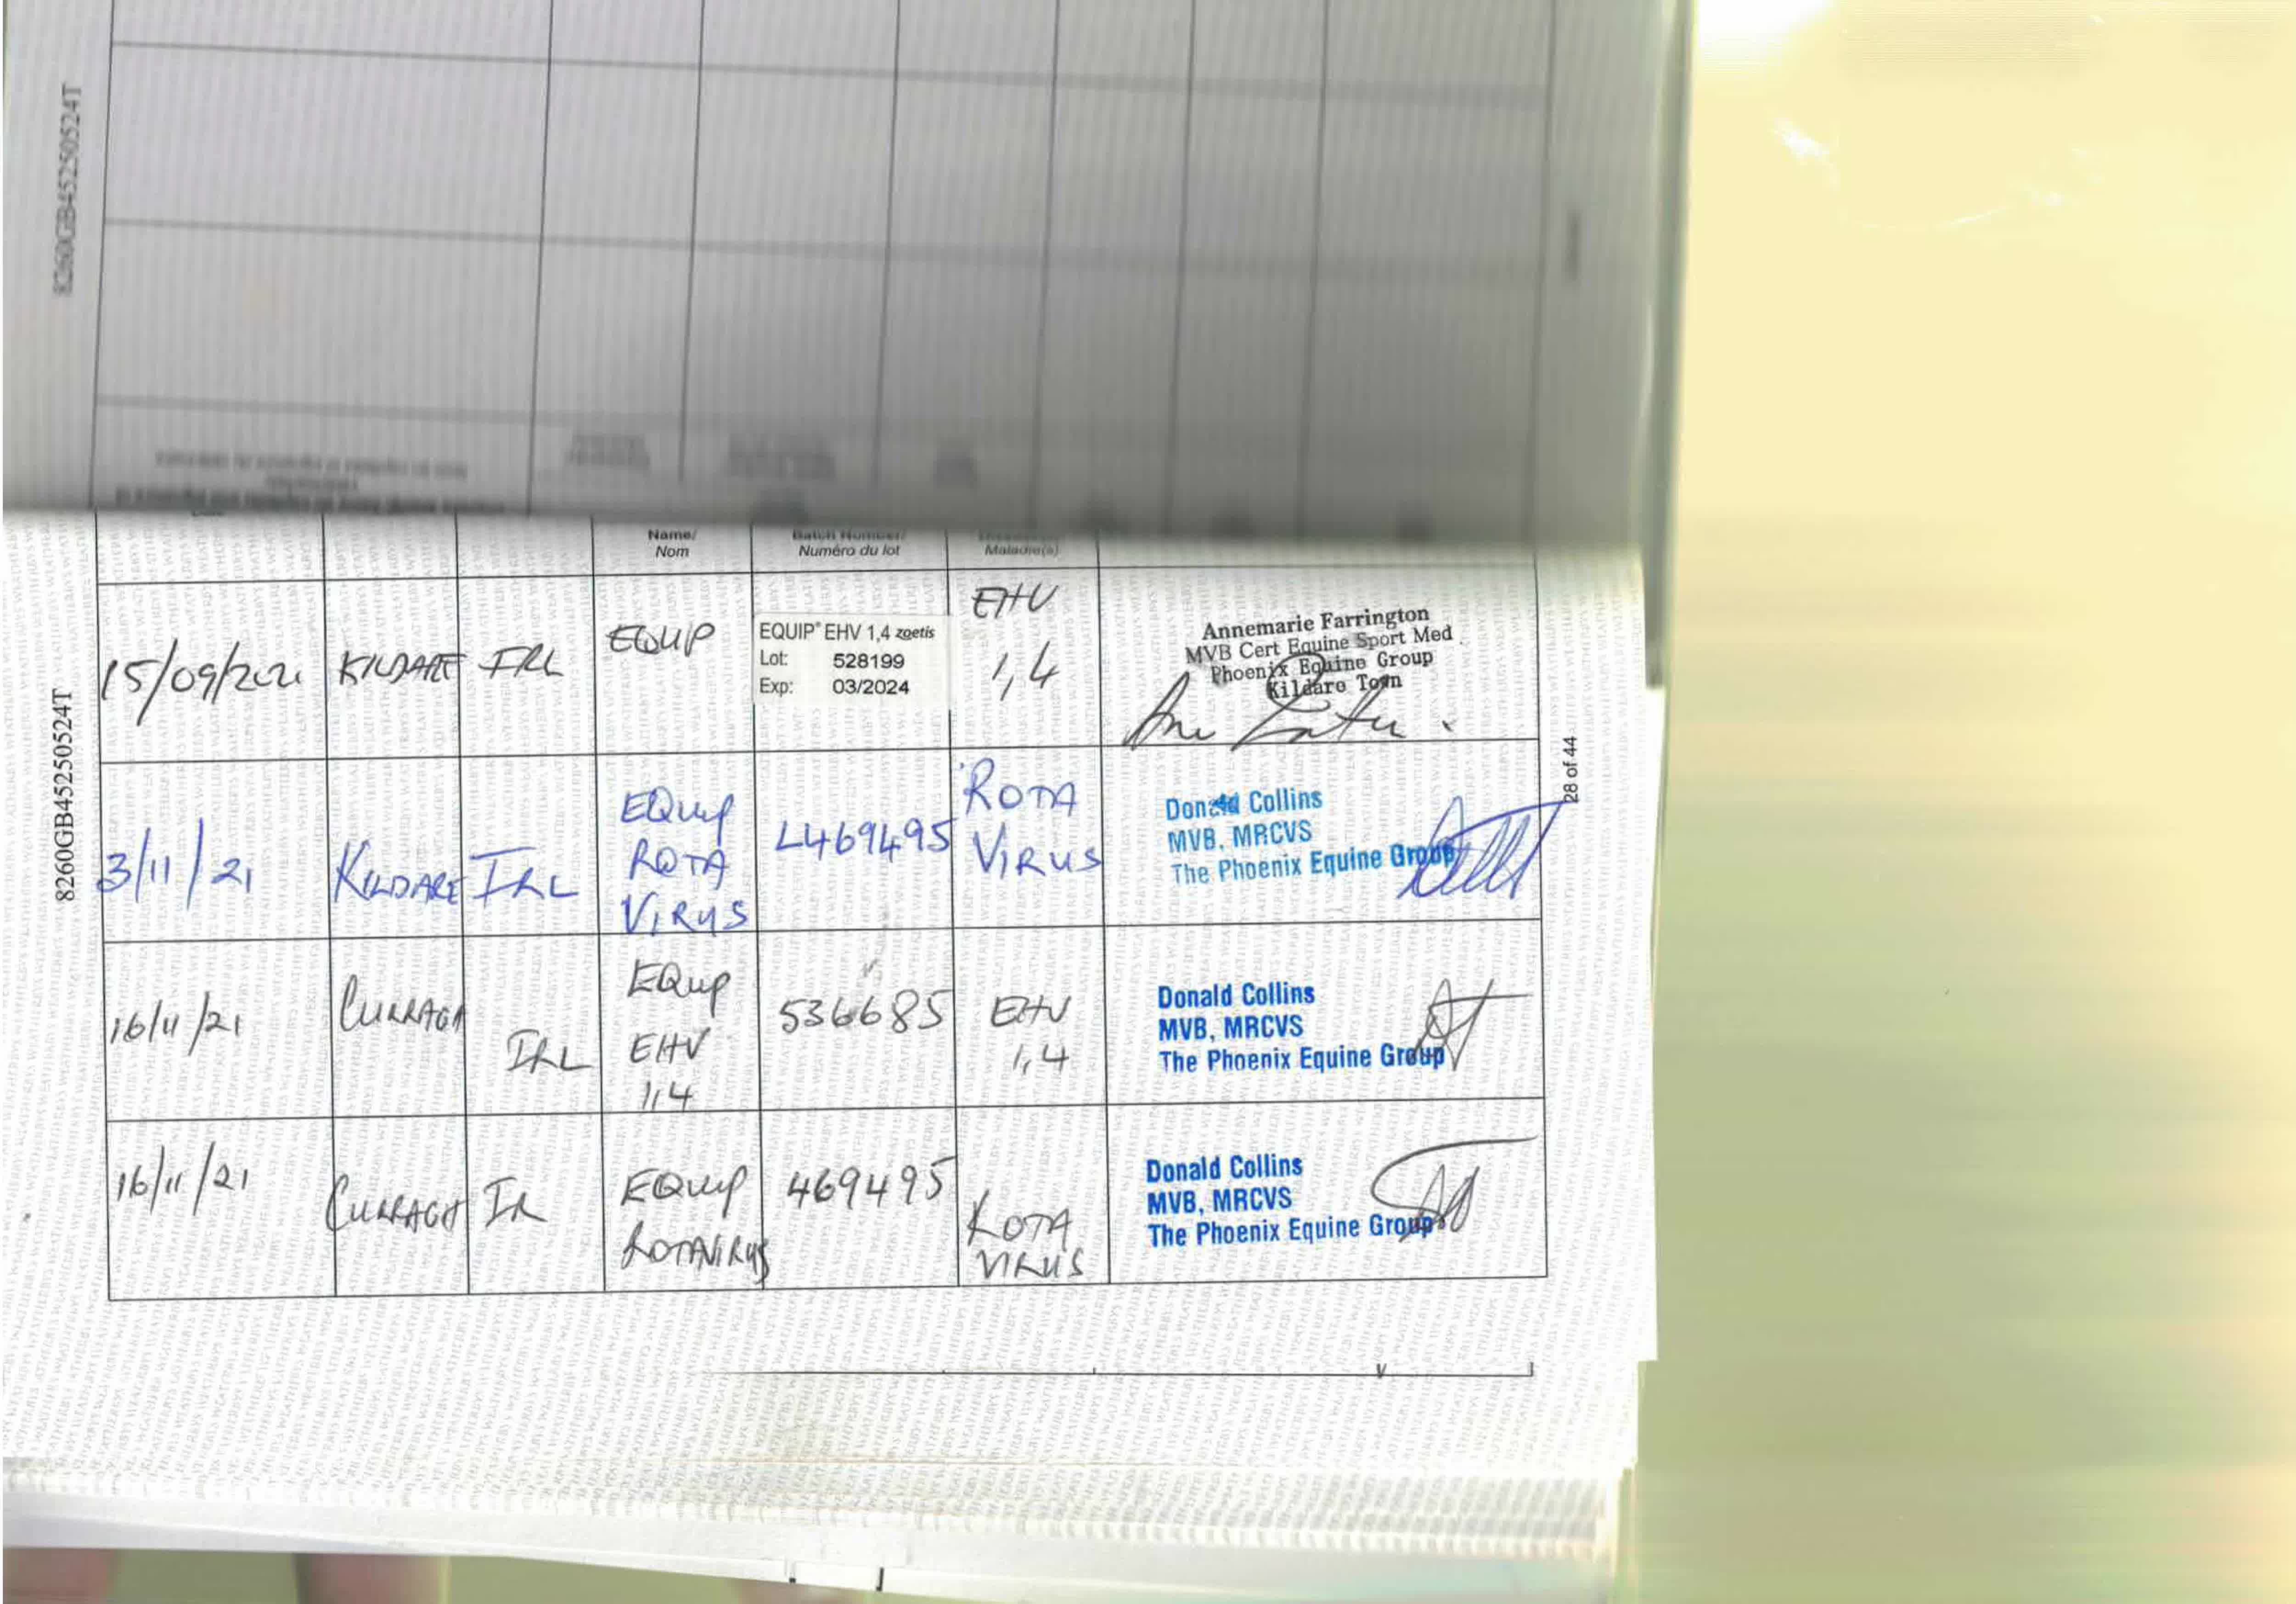 8260GB45250524T
Name/
Nom
Batch Number/
Numéro du lot
Maladie(s)
15/09/2021
KILDARE
IRL
EQUIP
EQUIP® EHV 1,4 zoetis
Lot: 528199
Exp: 03/2024
EHV
1,4
Annemarie Farrington
MVB Cert Equine Sport Med
Phoenix Equine Group
Kildare Town
3/11/21
KILDARE
IRL
EQuip
ROTA
VIRUS
L469495
ROTA
VIRUS
Donald Collins
MVB, MRCVS
The Phoenix Equine Group
16/11/21
CURRAGH
IRL
EQuip
EHV
1,4
536685
EHV
1,4
Donald Collins
MVB, MRCVS
The Phoenix Equine Group
16/11/21
CURRAGH
IR
EQuip
ROTAVIRUS
469495
ROTA
VIRUS
Donald Collins
MVB, MRCVS
The Phoenix Equine Group
8260GB45250524T
28 of 44